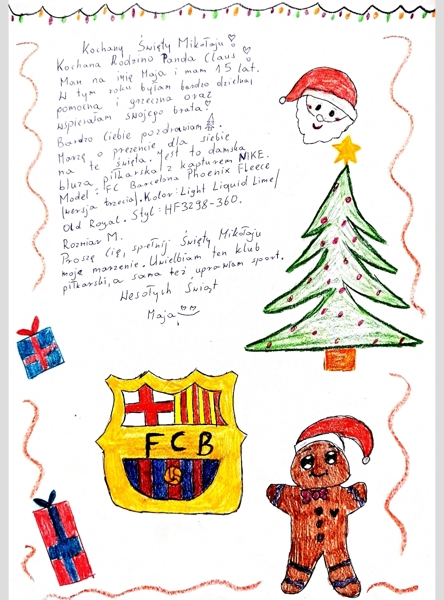 Kochany Święty Mikołaju
Kochana Rodzino Panda Claus
Mam na imię Maja i mam 15 lat.
W tym roku byłam bardzo dzielna
pomocna i grzeczna oraz
wspierałam swojego brata!
Bardzo Ciebie pozdrawiam
Marzę o prezencie dla siebie
na te święta. Jest to damska
bluza piłkarska z kapturem NIKE.
Model: FC Barcelona Phoenix Fleece
(wersja trzecia). Kolor: Light Liquid Lime/
Old Royal. Styl: HF3298-360.
Rozmiar M.
Proszę Cię, spełnij Święty Mikołaju
moje marzenie. Uwielbiam ten klub
piłkarski, a sama też uprawiam sport.
Wesołych Świąt
Maja
FCB